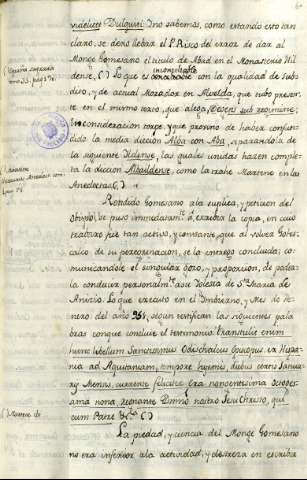 videlicet Dulquiri
Ino sabemos, como estando esto tan
claro, se dexó llebar el P. Risco del error de dar al
Monge Gomesano el titulo de Abad en el Monasterio
dense, () Lo que es incompatible con la qualidad de subdi
dito, y de actual Morador en Alvelda, que supo presen
te en el mismo texto, que alega, degens sub regimine;
Inconsideracion torpe, y que provino de haber confun
dido la media diccion Alba con Abba, aparandola de
la siguiente Ildense, las quales unidas hazen comple
ta la diccion Albaildense, como la trahe Martene en las
Anecdotas ()
Rendido Gomesano a la suplica, y peticion del
Obispo, se puso inmediatamte a extraher la copia, en cuio
trabaxo fue tan activo, y constante, que al volver Gotes
calco de su peregrinacion, se la entregó concluida; co
municandole el singular gozo, y proporcion, de poder
la conducir personalmte a su Iglesia de Sta Maria de
Anicio. Lo que executo en el Imbierno, y Mes de He
nero del año 951, segun certifican las siguientes pala
bras conque concluie el testimonio: Transtulit enim
hunc libellum Sanctissimus Godeschalcus Episcopus ex Hispa
nia ad Aquitaniam, tempore hyemis, diebus certis Janua
rij Mensis, currente feliciter Era nonocentesima
nona, regnante Domino nostro Jesu Christo, qui
cum Patre &c. ()
La piedad, y ciencia del Monge Gomesano
no era inferior a la actividad, y destreza en escribir
() España sagrada
tom. 33. pag. 176.
() Martene
Thesaurus Anecdotor.
() Martene